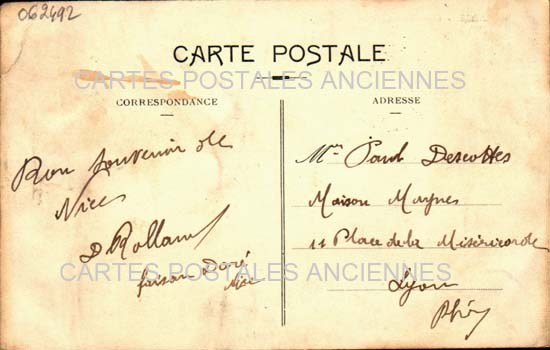 062492
CARTE POSTALE
CARTES POSTALES ANCIENNES
CORRESPONDANCE
ADRESSE
Bon souvenir de
Nice
D Rolland
faisan Doré
Nice
Mr Paul Descottes
Maison Maynes
11 Place de la Miséricorde
Lyon
Rhône
CARTES POSTALES ANCIENNES